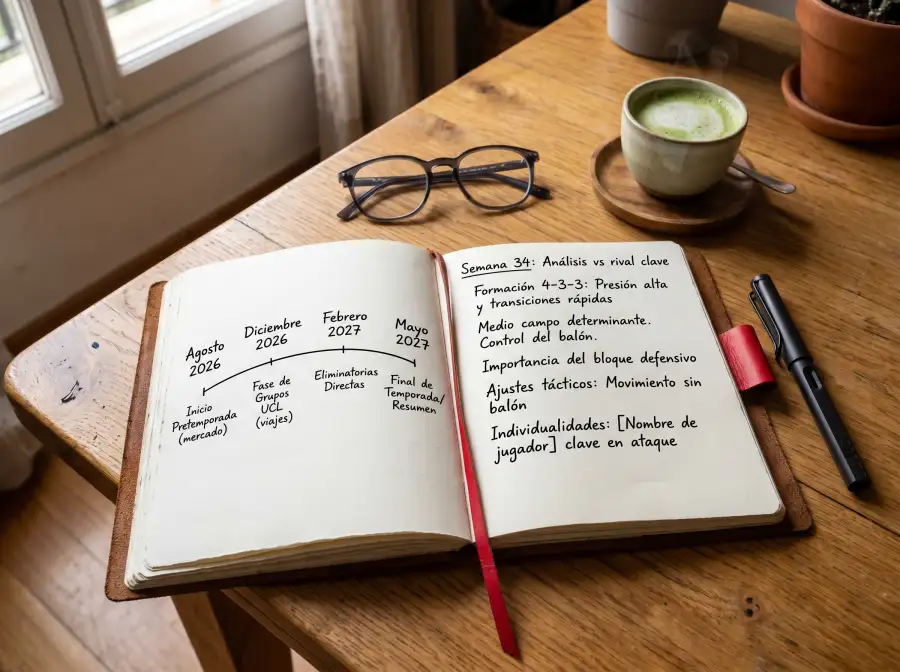 Agosto
2026
Inicio
Pretemporada
(mercado)
Diciembre
2026
Fase de
Grupos
UCL
(viajes)
Febrero
2027
Eliminatorias
Directas
Mayo
2027
Final de
Temporada/
Resumen
Semana 34: Análisis vs rival clave
Formación 4-3-3: Presión alta
y transiciones rápidas
Medio campo determinante.
Control del balón.
Importancia del bloque defensivo
Ajustes tácticos: Movimiento sin
balón
Individualidades: [Nombre de
jugador] clave en ataque